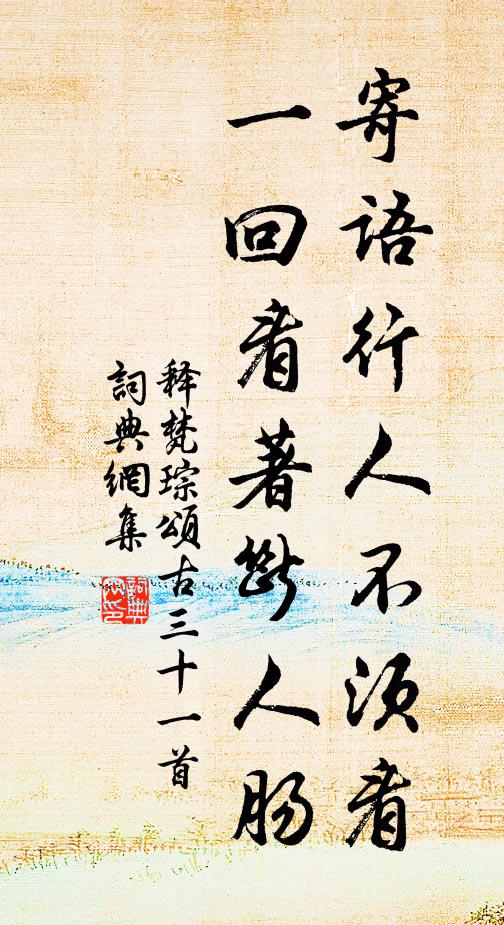 寄語行人不須看
一回看著斷人腸
释梵琮頌古三十一首
詞典網集